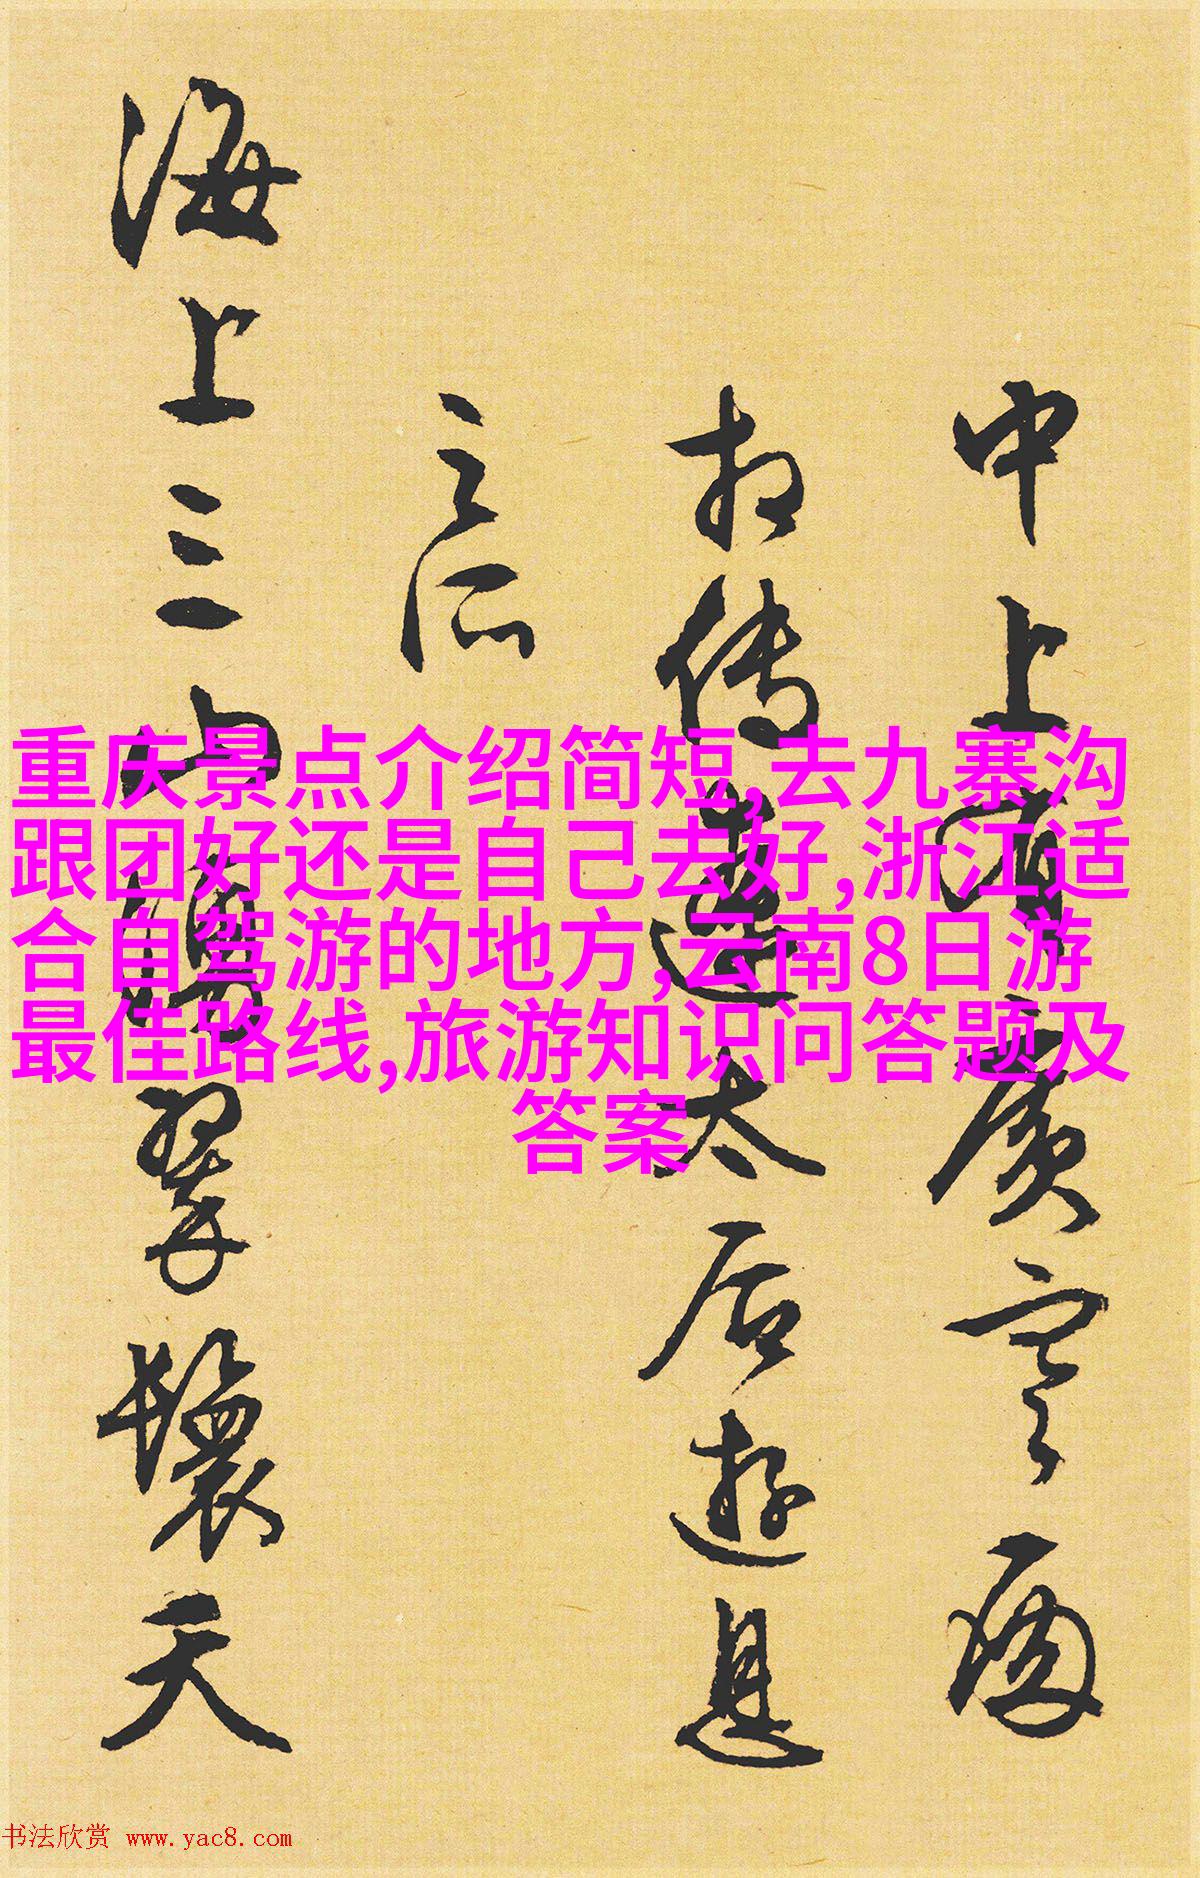 中上有廣寒殿
相傳遼太后遊息
之所
海上三山擁翠鬟天
重庆景点介绍简短,去九寨沟
跟团好还是自己去好,浙江适
合自驾游的地方,云南8日游
最佳路线,旅游知识问答题及
答案
书法欣赏 www.yac8.com